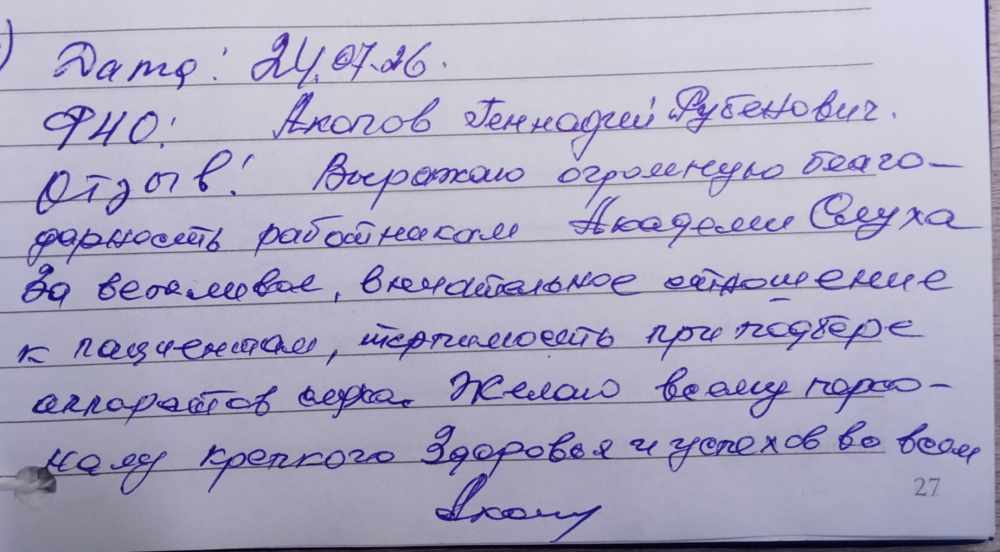 Дата: 24.07.26.
ФИО: Акопов Геннадий Рубенович.
Отзыв: Выражаю огромную благо-
дарность работникам Академии Слуха
За вежливое, внимательное отношение
к пациентам, терпимость при подборе
аппаратов слуха. Желаю всему персо-
налу крепкого Здоровья и успехов во всем
27